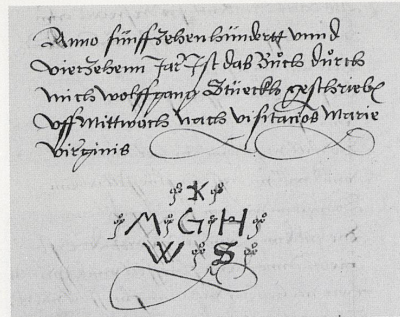 Anno fünffzehenhündertt vnnd
vierzehenn Jar Ist das Bůch důrch
mich wolffgang Stüeckh geschriebē
vff Mittwoch nach visitacōis Marie
virginis
K
M G H
W S